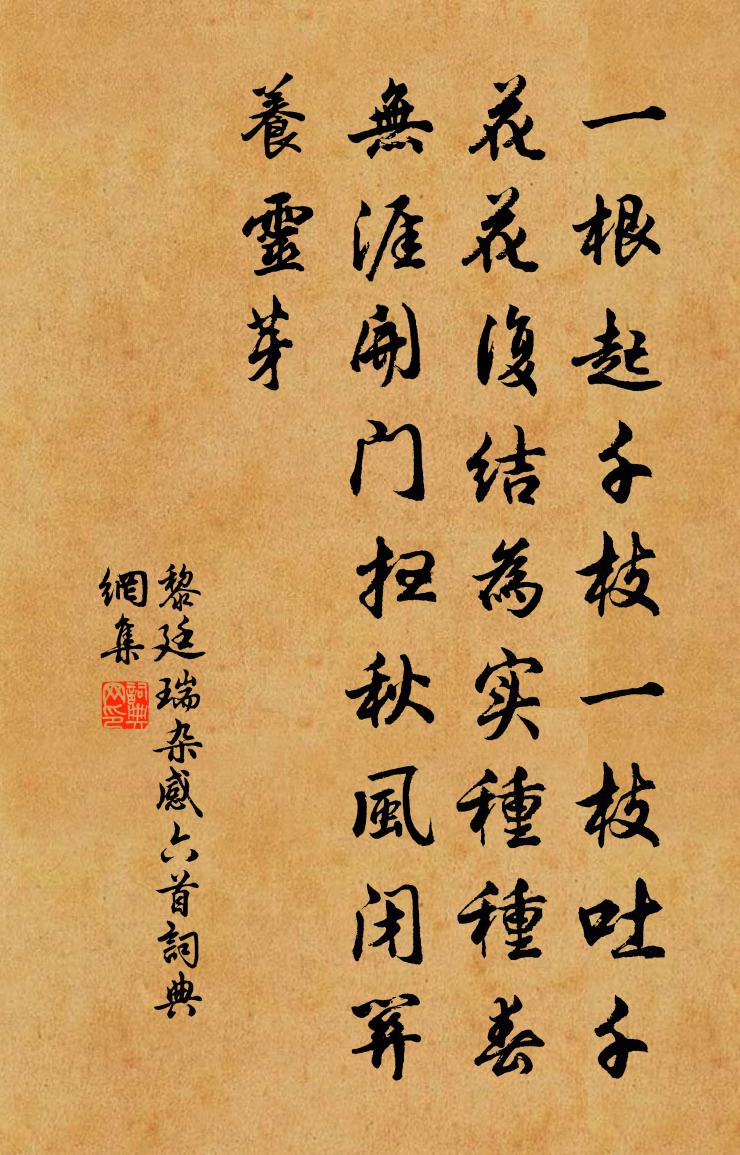 一根起千枝一枝吐千
花花復结為实種種春
無涯開门扫秋風闭关
養靈芽
黎廷瑞杂感六首詞典
網集
詞典
网印